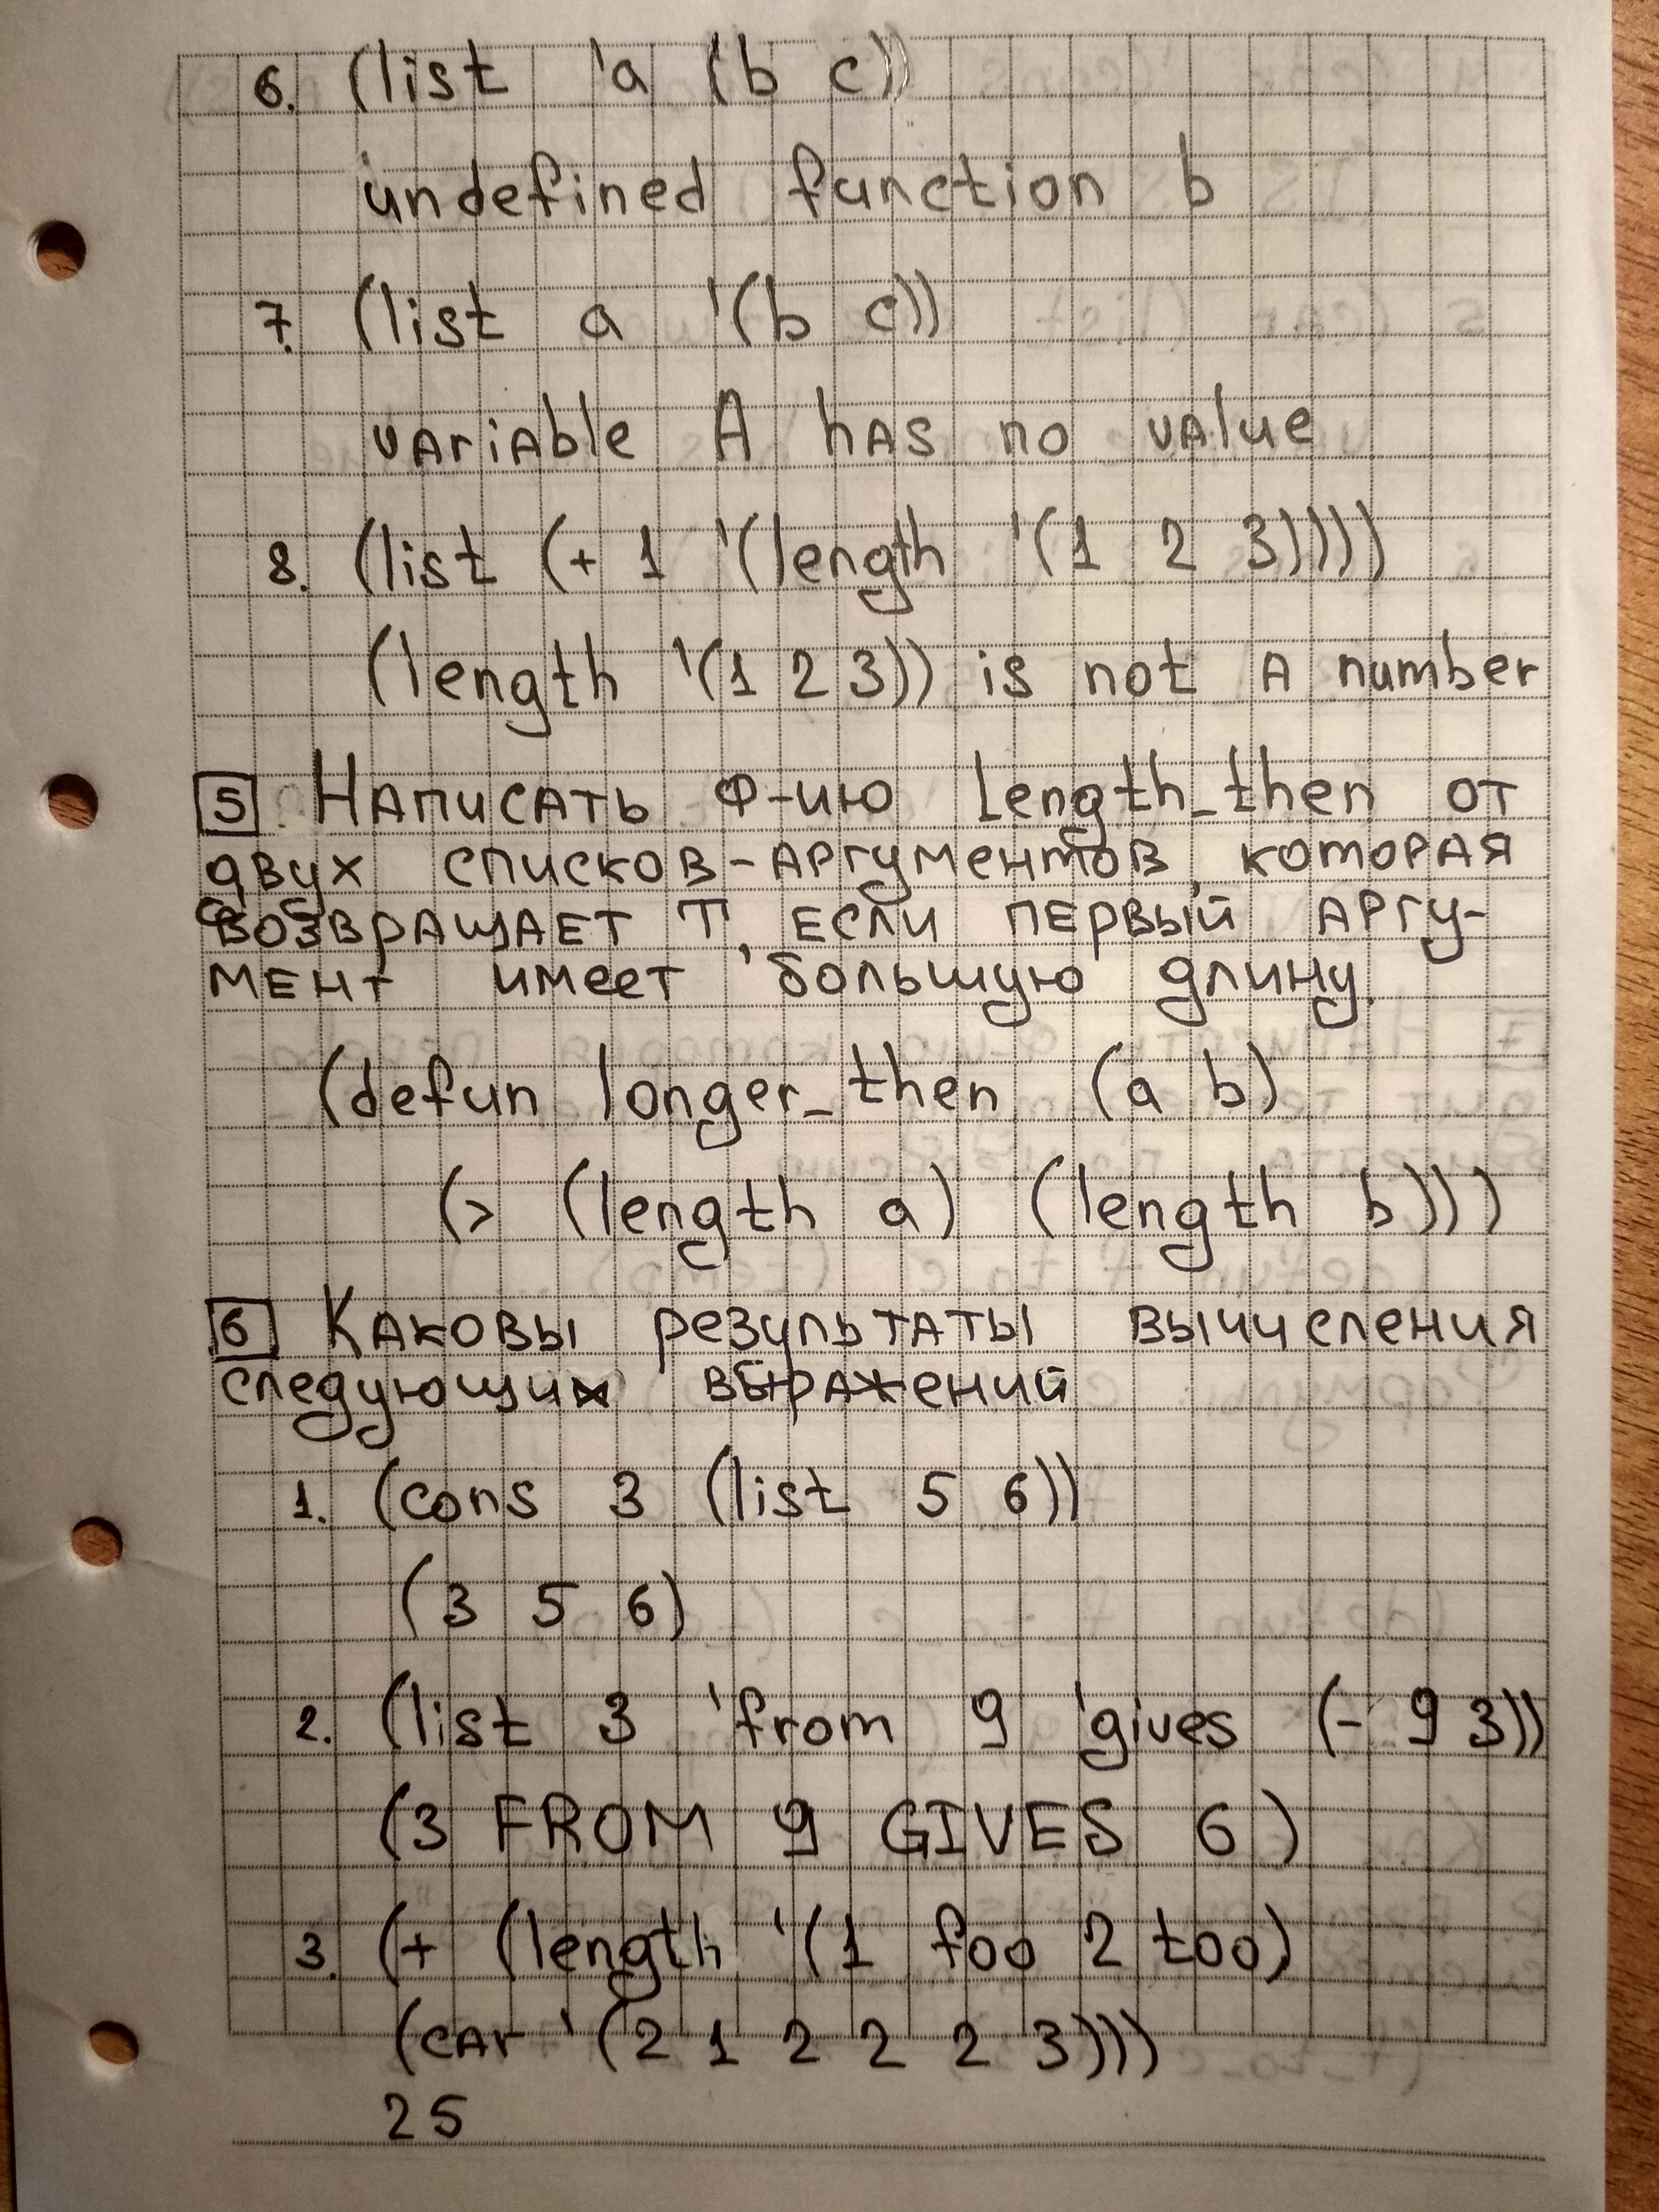 6. (list 'a (b c))
undefined function b
7. (list a '(b c))
variable A has no value
8. (list (+ 1 '(length '(1 2 3))))
(length '(1 2 3)) is not a number
5 Написать ф-ию Length_then от
двух списков-аргументов, которая
возвращает T, если первый аргу-
мент имеет большую длину.
(defun longer_then (a b)
(> (length a) (length b)))
6 Каковы результаты вычисления
следующих выражений
1. (cons 3 (list 5 6))
(3 5 6)
2. (list 3 'from 9 'gives (- 9 3))
(3 FROM 9 GIVES 6)
3. (+ (length '(1 foo 2 too)
(car '(2 1 2 2 2 3)))
25